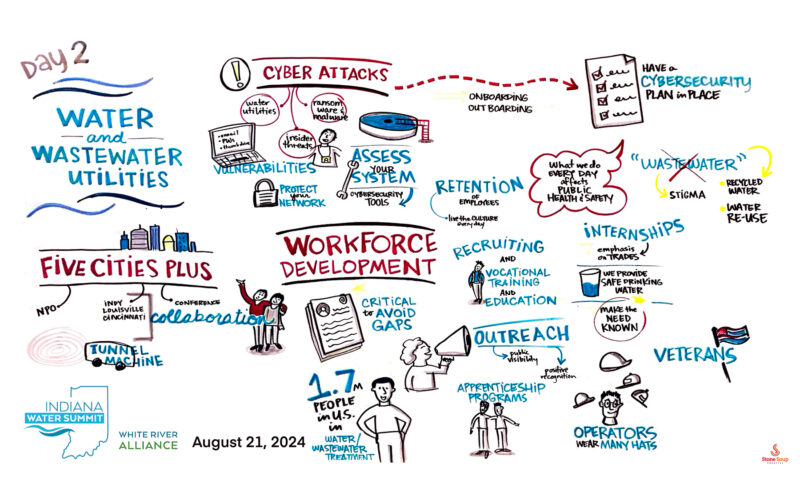 Day 2
WATER
and
WASTEWATER
UTILITIES
!
CYBER ATTACKS
water
utilities
ransom
ware &
malware
insider
threats
email
PWs
thumb drive
VULNERABILITIES
PROTECT
your
NETWORK
ASSESS
YOUR
SYSTEM
CYBERSECURITY
TOOLS
ONBOARDING
OUTBOARDING
HAVE a
CYBERSECURITY
PLAN in PLACE
RETENTION
of
EMPLOYEES
• live the CULTURE
every day
What we do
EVERY DAY
affects
PUBLIC
HEALTH & SAFETY
"WASTEWATER"
STIGMA
• RECYCLED
WATER
• WATER
RE-USE
FIVE CITIES PLUS
NPO
INDY
LOUISVILLE
CINCINNATI
CONFERENCE
collaboration
TUNNEL
MACHINE
WORKFORCE
DEVELOPMENT
CRITICAL
to AVOID
GAPS
RECRUITING
AND
VOCATIONAL
TRAINING
AND
EDUCATION
INTERNSHIPS
emphasis
on TRADES
WE PROVIDE
SAFE DRINKING
WATER
MAKE the
NEED
KNOWN
OUTREACH
public
visibility
positive
recognition
VETERANS
1.7M
PEOPLE
in U.S.
in
WATER/
WASTEWATER
TREATMENT
APPRENTICESHIP
PROGRAMS
OPERATORS
WEAR MANY HATS
INDIANA
WATER SUMMIT
WHITE RIVER
ALLIANCE
August 21, 2024
Stone Soup
CREATIVE